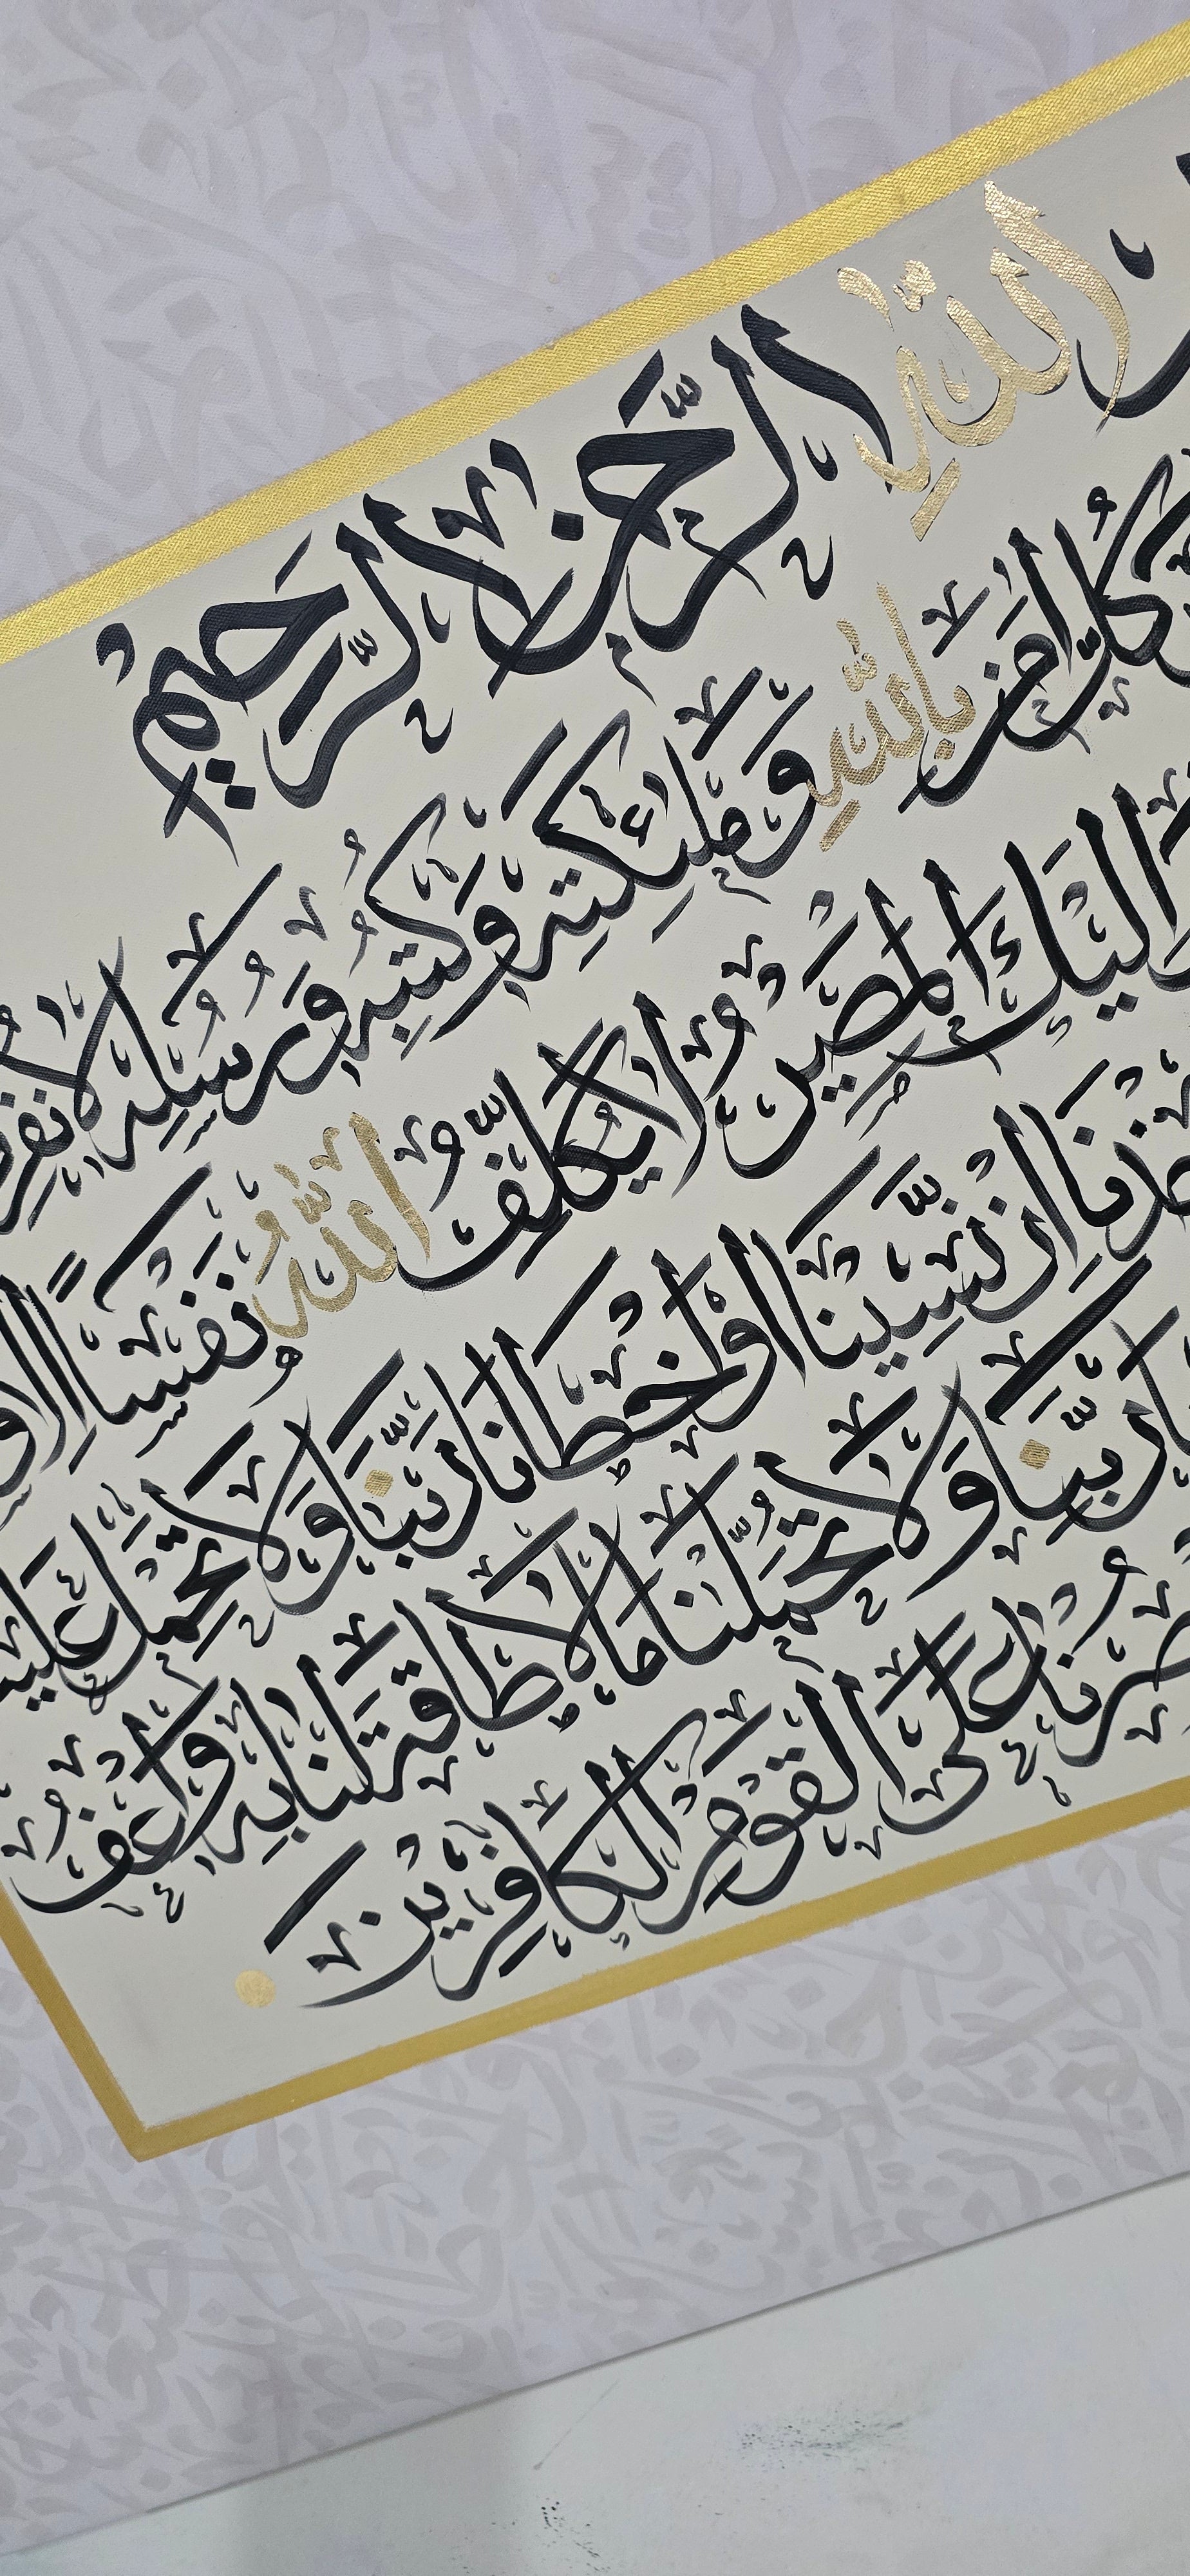 اللّٰهِ الرَّحْمٰنِ الرَّحِيْمِ
كُلٌّ اٰمَنَ بِاللّٰهِ وَمَلٰٓئِكَتِهٖ وَكُتُبِهٖ وَرُسُلِهٖ لَا نُفَرِّ
اِلَيْكَ الْمَصِيْرُ لَا يُكَلِّفُ اللّٰهُ نَفْسًا اِلَّا
اِنْ نَّسِيْنَا اَوْ اَخْطَاْنَا رَبَّنَا وَلَا تَحْمِلْ عَلَيْ
رَبَّنَا وَلَا تُحَمِّلْنَا مَا لَا طَاقَةَ لَنَا بِهٖ وَاعْفُ
عَلَى الْقَوْمِ الْكَافِرِيْنَ